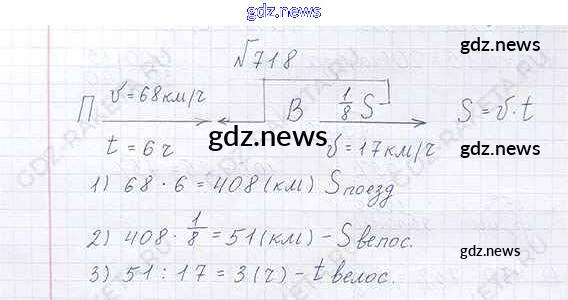 gdz.news
№718
gdz.news
П v = 68 км/ч В 1/8 S S = v · t
t = 6 ч gdz.news v = 17 км/ч gdz.news
1) 68 · 6 = 408 (км) S поезд
2) 408 · 1/8 = 51 (км) – S велос.
3) 51 : 17 = 3 (ч) – t велос.
gdz.news
gdz.news
GDZ-RAKETA.RU